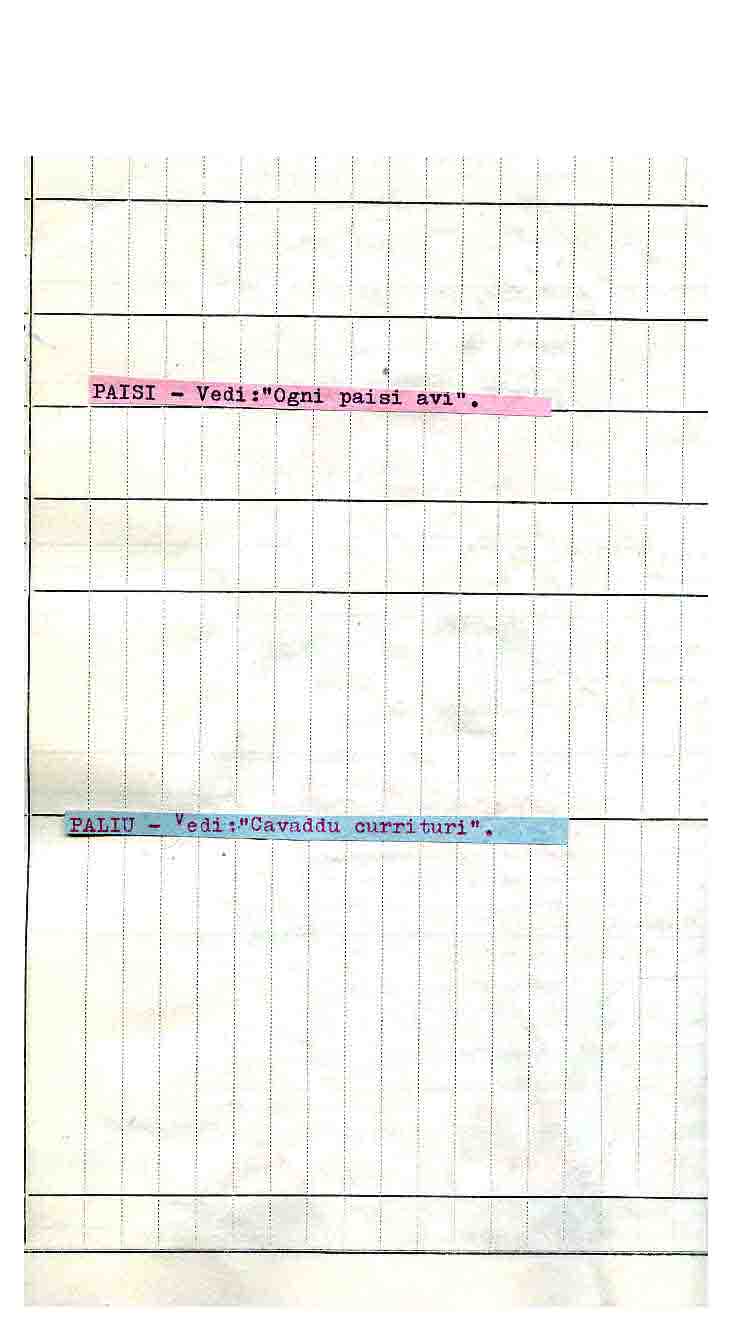 PAISI - Vedi:"Ogni paisi avi".
PALIU - Vedi:"Cavaddu currituri".